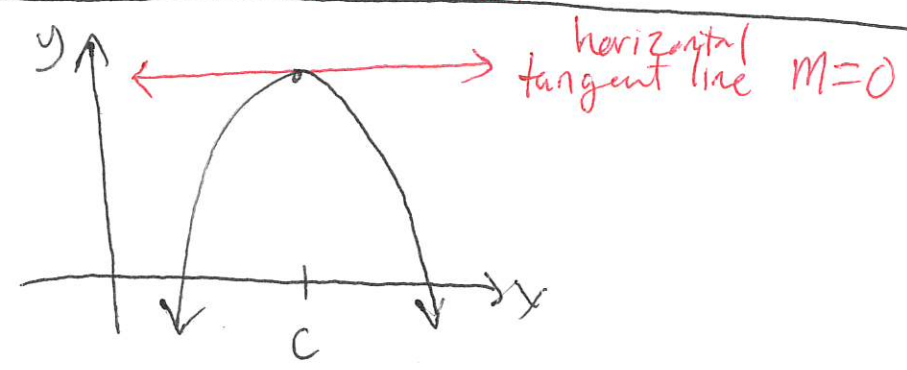 y
horizontal
tangent line m=0
x
c